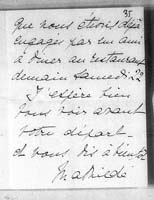 35
que nous étions déjà
engagés par un ami
à dîner au restaurant
demain samedi 22
J'espère bien
vous voir avant
votre départ
et vous dis à bientôt
Mathilde